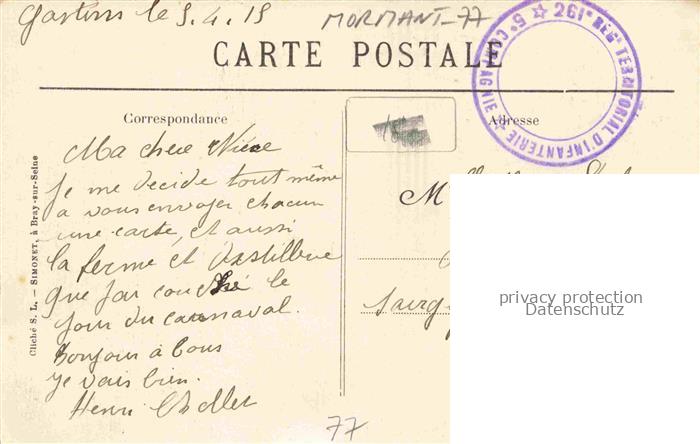 Gastins le 5.4.15
MORMANT-77
CARTE POSTALE
5e COMPAGNIE ☆ 261e REGt TERRITORIAL D'INFANTERIE ☆
Correspondance
Adresse
Cliché S. L. – SIMONET, à Bray-sur-Seine
Ma chere Niéce
je me decide tout même
a vous envoyer chacun
une carte, et aussi
la ferme et
que jai couché le
jour du carnaval.
Bonjour à tous
je vais bien.
Henri
M
77
privacy protection
Datenschutz